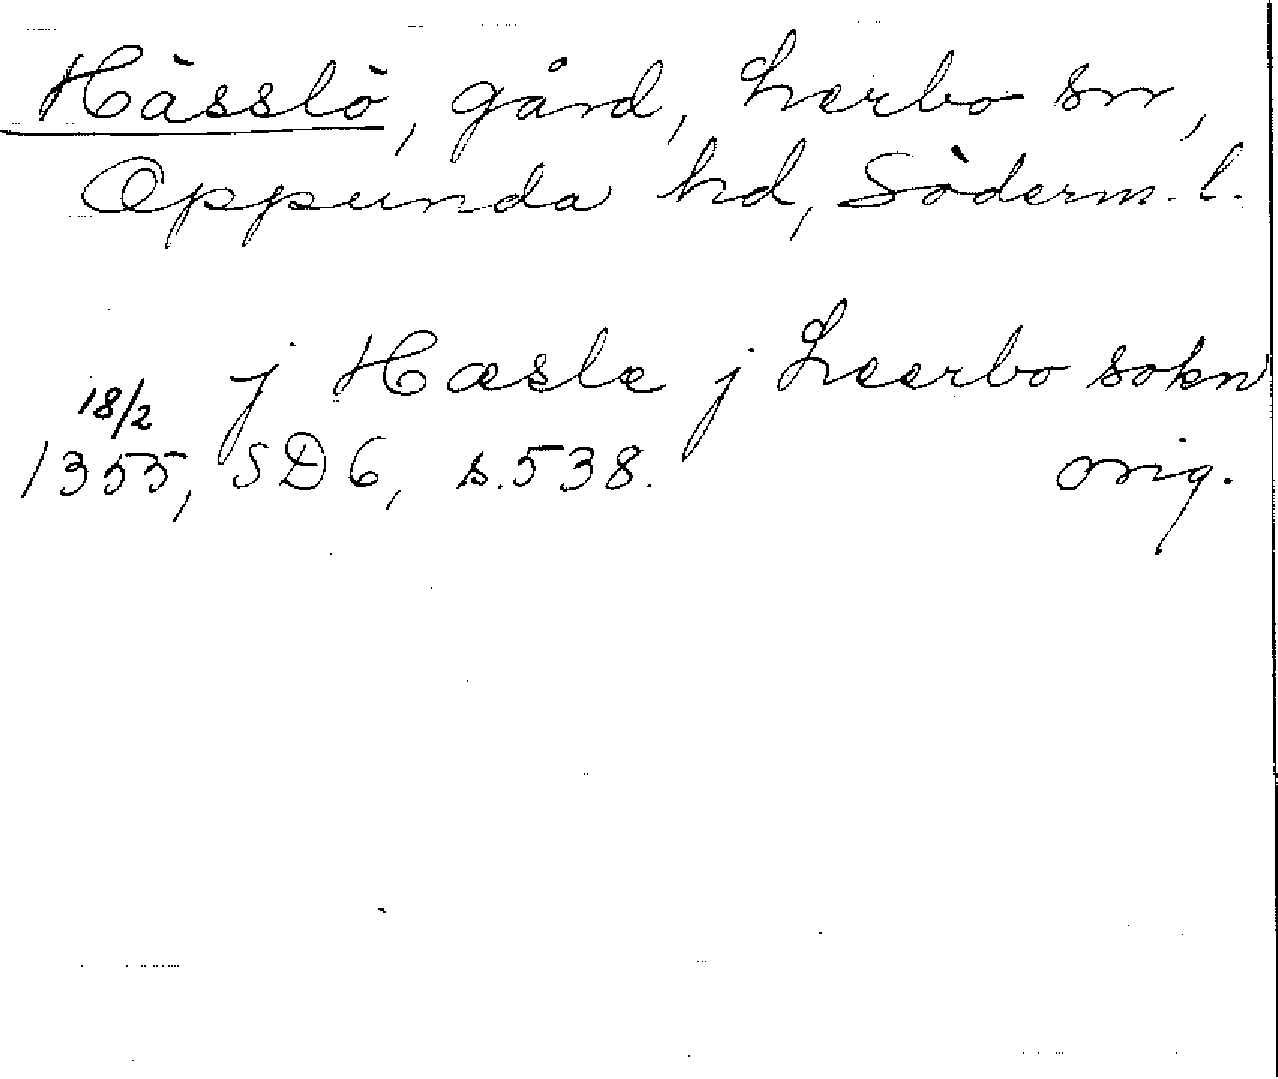 Hässlö, gård, Lerbo sn,
Oppunda hd, Söderm. l.
j Hæsle j Leerbo sokn
18/2
1355, SD 6, s. 538. orig.